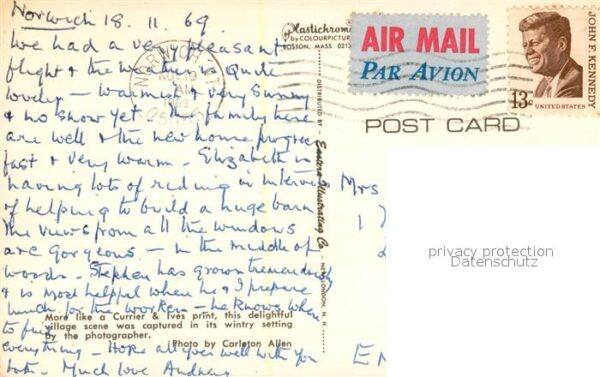 Norwich 18. 11. 69.
We had a very pleasant
flight & the weather is quite
lovely - warmish & very sunny
& no snow yet. The family here
are well & the new home progress
fast & very warm - Elizabeth is
having lots of riding in intervals
of helping to build a huge barn
The views from all the windows
are gorgeous - in the middle of
woods - Stephen has grown tremendously
& is most helpful when he & I prepare
lunch for the workers - he knows when
to find
everything - Hope all goes well with you
both - Much love Andreas
More like a Currier & Ives print, this delightful
village scene was captured in its wintry setting
by the photographer.
Photo by Carleton Allen
Plastichrome
by COLOURPICTURE
BOSTON, MASS. 0213
DISTRIBUTED BY Eastern Illustrating Co. NEW LONDON, N. H.
NORWICH
1969
AIR MAIL
PAR AVION
JOHN F. KENNEDY
13c
UNITED STATES
POST CARD
Mrs
1
privacy protection
Datenschutz
EN